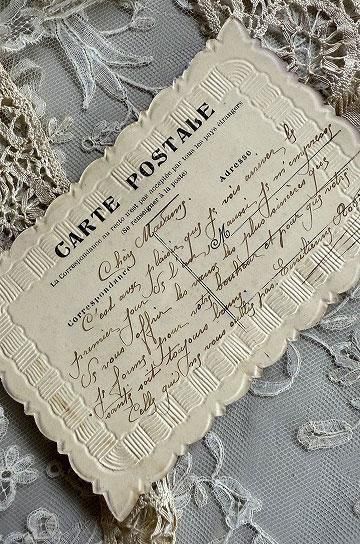 CARTE POSTALE
La Correspondance au recto n'est pas acceptée par tous les pays étrangers
(Se renseigner à la poste)
Correspondance
Adresse
M
C'est avec plaisir que je vois arriver le
premier jour de l'an. Aussi je m'empresse
de vous offrir les vœux les plus sincères que
je forme, pour votre bonheur et pour que votre
santé soit toujours bonne.
Celle qui ne vous oublie pas.